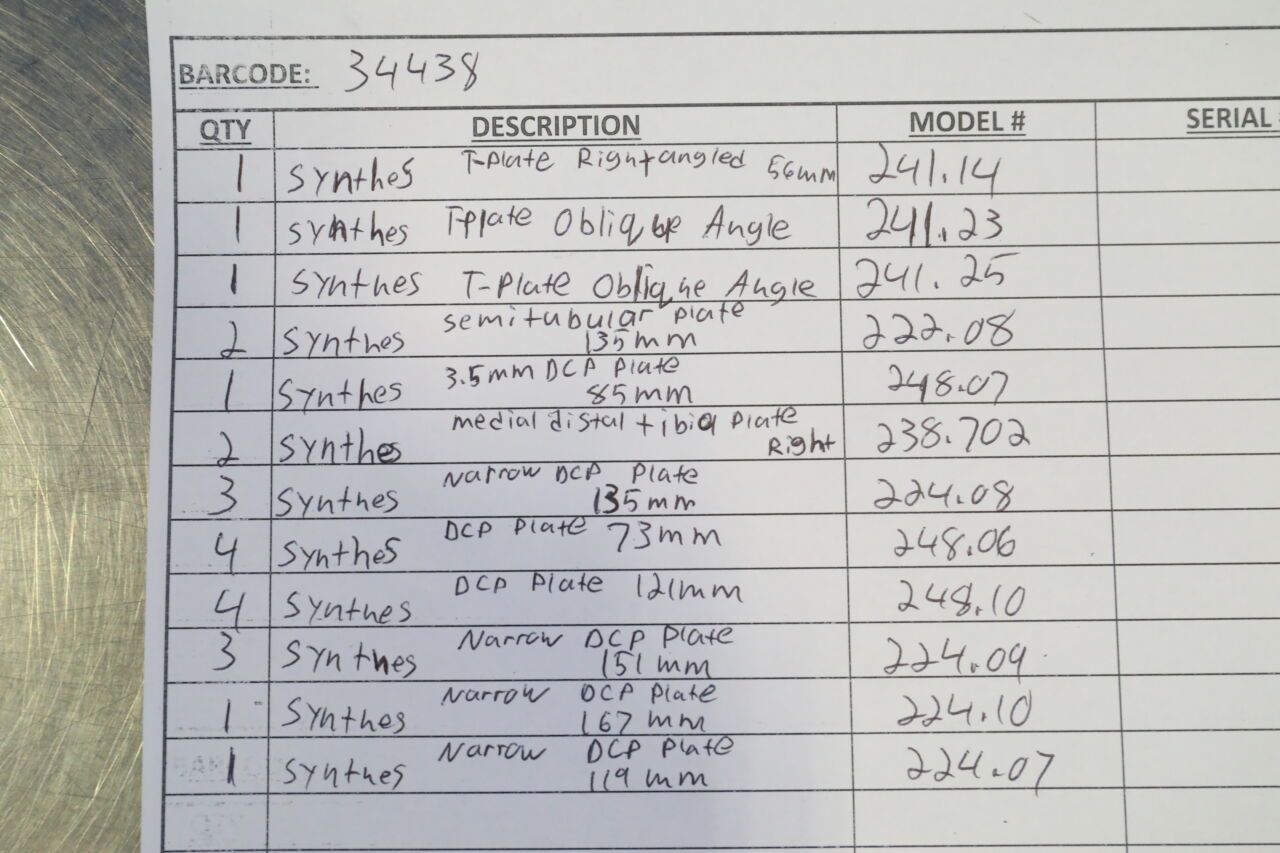 BARCODE: 34438
QTY DESCRIPTION MODEL # SERIAL
1 Synthes T-Plate Right angled 56mm 241.14
1 Synthes T-plate Oblique Angle 241.23
1 Synthes T-Plate Oblique Angle 241.25
2 Synthes semitubular plate 135mm 222.08
1 Synthes 3.5mm DCP Plate 85mm 248.07
2 Synthes medial distal tibia Plate Right 238.702
3 Synthes Narrow DCP Plate 135mm 224.08
4 Synthes DCP Plate 73mm 248.06
4 Synthes DCP Plate 121mm 248.10
3 Synthes Narrow DCP Plate 151mm 224.09
1 Synthes Narrow DCP Plate 167mm 224.10
1 Synthes Narrow DCP Plate 119mm 224.07